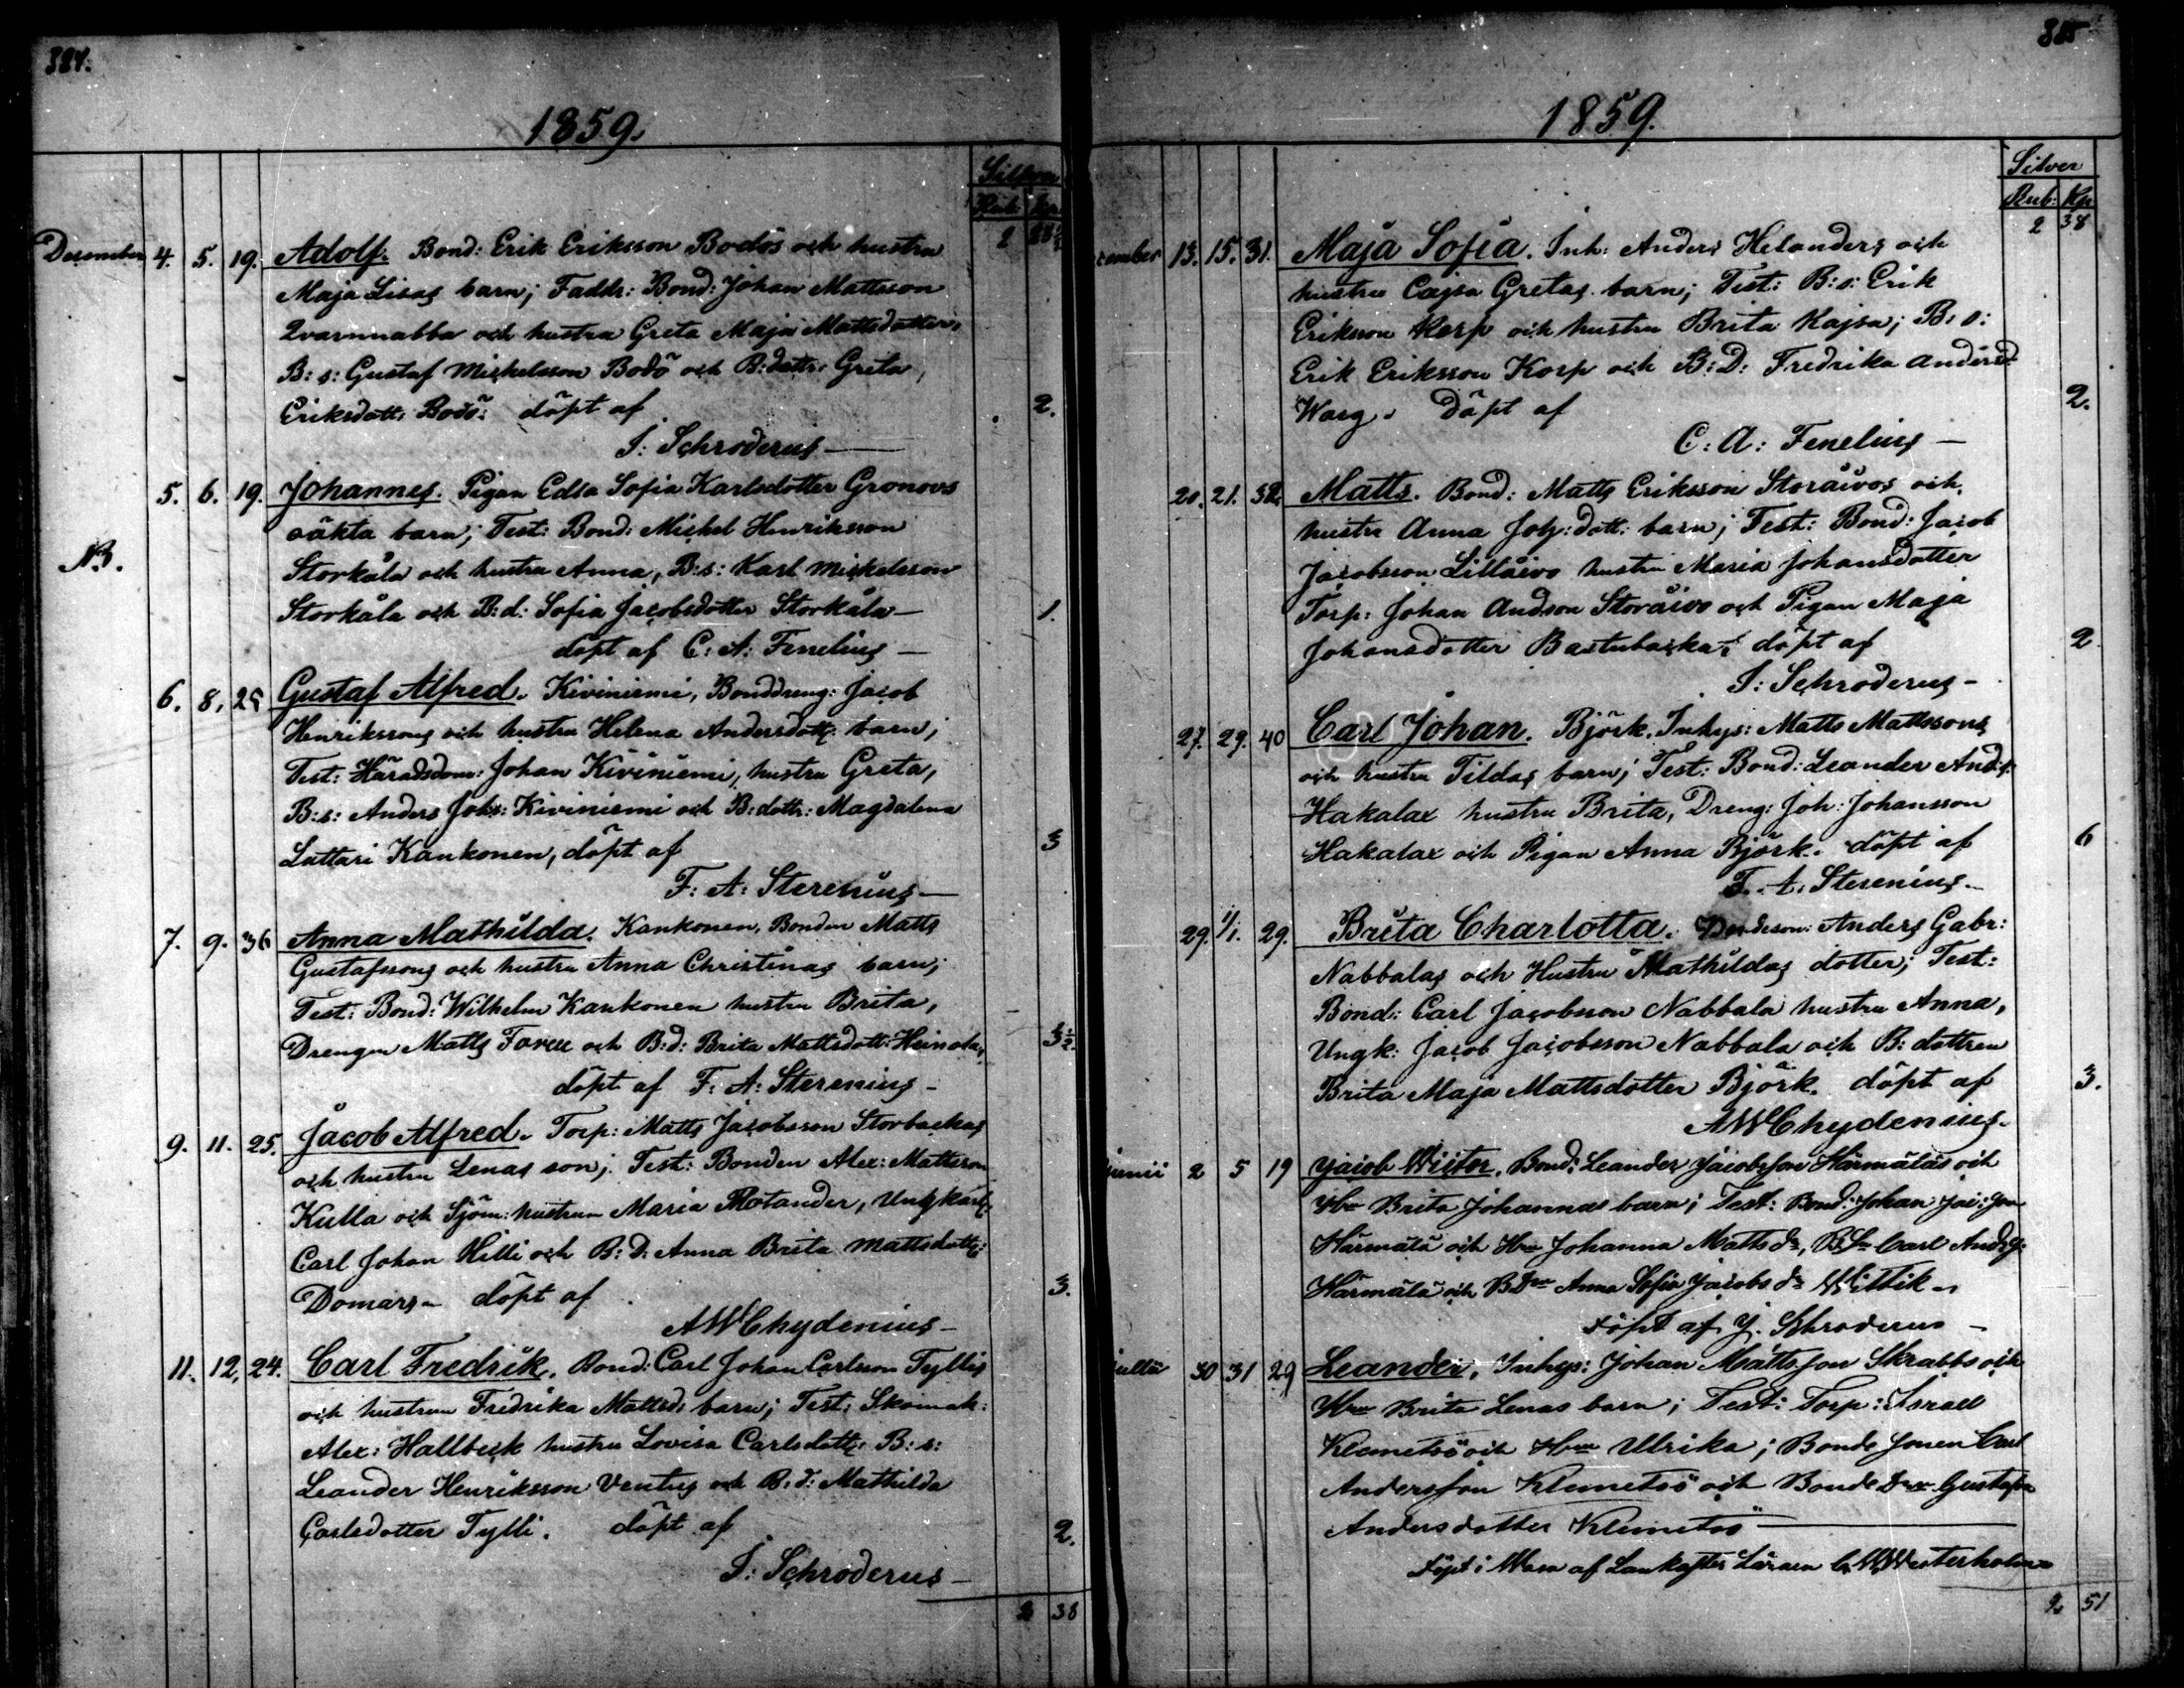 384.
1859.
Silfver
Rub: Kp
2 28½
December 4. 5. 19. Adolf. Bond: Erik Eriksson Bodös och hustru
Maja Lisas barn; Faddr: Bond: Johan Mattsson
Qvarnnabba och hustru Greta Maja Mattsdotter,
B: s: Gustaf Mickelsson Bodö och B:dottr: Greta
Eriksdott: Bodö: döpt af 2.
J: Schroderus —
5. 6. 19. Johannes. Pigan Edla Sofia Karlsdotter Gronovs
oäkta barn; Test: Bond: Mickel Henriksson
NB. Storkåla och hustru Anna, B:s: Karl Mickelsson
Storkåla och B:d: Sofia Jacobsdotter Storkåla — 1.
döpt af C: A: Fenelius —
6. 8. 25 Gustaf Alfred. Kiviniemi, Bonddreng: Jacob
Henrikssons och hustru Helena Andersdott: barn;
Test: Häradsdom: Johan Kiviniemi, hustru Greta,
B:s: Anders Johs: Kiviniemi och B:dottr: Magdalena
Luttari Kankonen, döpt af 3
F: A: Sterenius —
7. 9. 36 Anna Mathilda. Kankonen, Bonden Matts
Gustafssons och hustru Anna Christinas barn;
Test: Bond: Wilhelm Kankonen hustru Brita,
Drengen Matts Forell och B:d: Brita Mattsdott: Heinola, 3½
döpt af F: A: Sterenius —
9. 11. 25. Jacob Alfred. Torp: Matts Jacobsson Storbackas
och hustru Lenas son; Test: Bonden Alex: Mattsson
Kulla och Sjöm: hustrun Maria Rotander, Ungkarl:
Carl Johan Hilli och B: D: Anna Brita Mattsdott:
Domars — döpt af 3.
AWChydenius —
11. 12. 24. Carl Fredrik. Bond: Carl Johan Carlsson Tyllis
och hustrun Fredrika Mattsd: barn; Test: Skomak:
Alex: Hallbeck hustru Lovisa Carlsdott: B: s:
Leander Henriksson Ventus och B: d: Mathilda
Carlsdotter Tylli. döpt af 2.
J: Schroderus —
2 38
385
1859.
Silver
Rub: Kp
2 38
cember 13. 15. 31. Maja Sofia. Inh: Anders Helanders och
hustru Cajsa Gretas barn; Test: B: s: Erik
Eriksson Korp och hustru Brita Kajsa; B: s:
Erik Eriksson Korp och B: D: Fredrika Andersd
Warg. döpt af 2.
C: A: Fenelius —
20. 21. 32. Matts. Bond: Matts Eriksson Storåivos och
hustru Anna Joh: dott: barn; Test: Bond: Jacob
Jacobsson Lillåivo hustru Maria Johansdotter
Torp: Johan Andson Storåivo och Pigan Maja
Johansdotter Bastubacka; döpt af 2
J: Schroderus —
27. 29. 40 Carl Johan. Björk. Inhys: Matts Mattssons
och hustru Tildas barn; Test: Bond: Leander And:s:
Hakalax hustru Brita, Dreng: Joh: Johansson
Hakalax och Pigan Anna Björk. döpt af 6
F: A: Sterenius —
29. 1/1. 29. Brita Charlotta. Bondeson: Anders Gabr:
Nabbalas och Hustru Mathildas dotter; Test:
Bond: Carl Jacobsson Nabbala hustru Anna,
Ungk: Jacob Jacobsson Nabbala och B: dottren
Brita Maja Mattsdotter Björk. döpt af 3.
AWChydenius.
Junii 2 5 19 Jacob Wictor. Bond: Leander Jacobsson Härmäläs och
Hu Brita Johannas barn; Test: Bond: Johan Jac: son
Härmälä och Hu Johanna Mattsdr, BSn Carl Andss:
Härmälä och BDn Anna Sofia Jacobsdr Wittik.
Döpt af J. Schroderus —
Julii 30 31 29 Leander, Inhys: Johan Mattsson Skrabbs och
Hu Brita Lenas barn; Test: Torp: Israel
Klemetsö och Hu Ulrika; Bonde Sonen Carl
Andersson Klemetsö och Bonde Dr Gustafva
Andersdotter Klemetsö —
Döpt i Wasa af Lankaster Läraren C. W. Westerholm
2 51